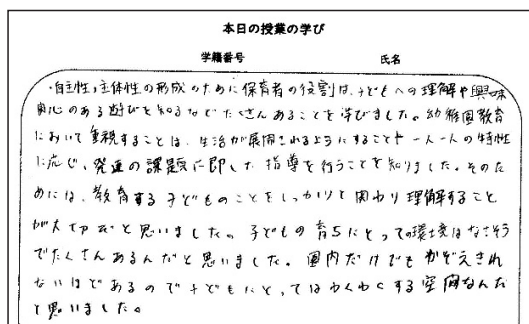 本日の授業の学び
学籍番号 氏名
・自主性、主体性の形成のために保育者の役割は、子どもへの理解や興味
関心のある遊びを知るなどたくさんあることを学びました。幼稚園教育
において重視することは、生活が展開されるようにすることや一人一人の特性
に応じ、発達の課題に即した指導を行うことを知りました。そのた
めには、教育する子どものことをしっかりと関わり理解すること
が大切だと思いました。子どもの育ちにとっての環境はなさそう
でたくさんあるんだと思いました。園内だけでもかぞえきれ
ないほどあるので子どもにとってはわくわくする空間なんだ
と思いました。